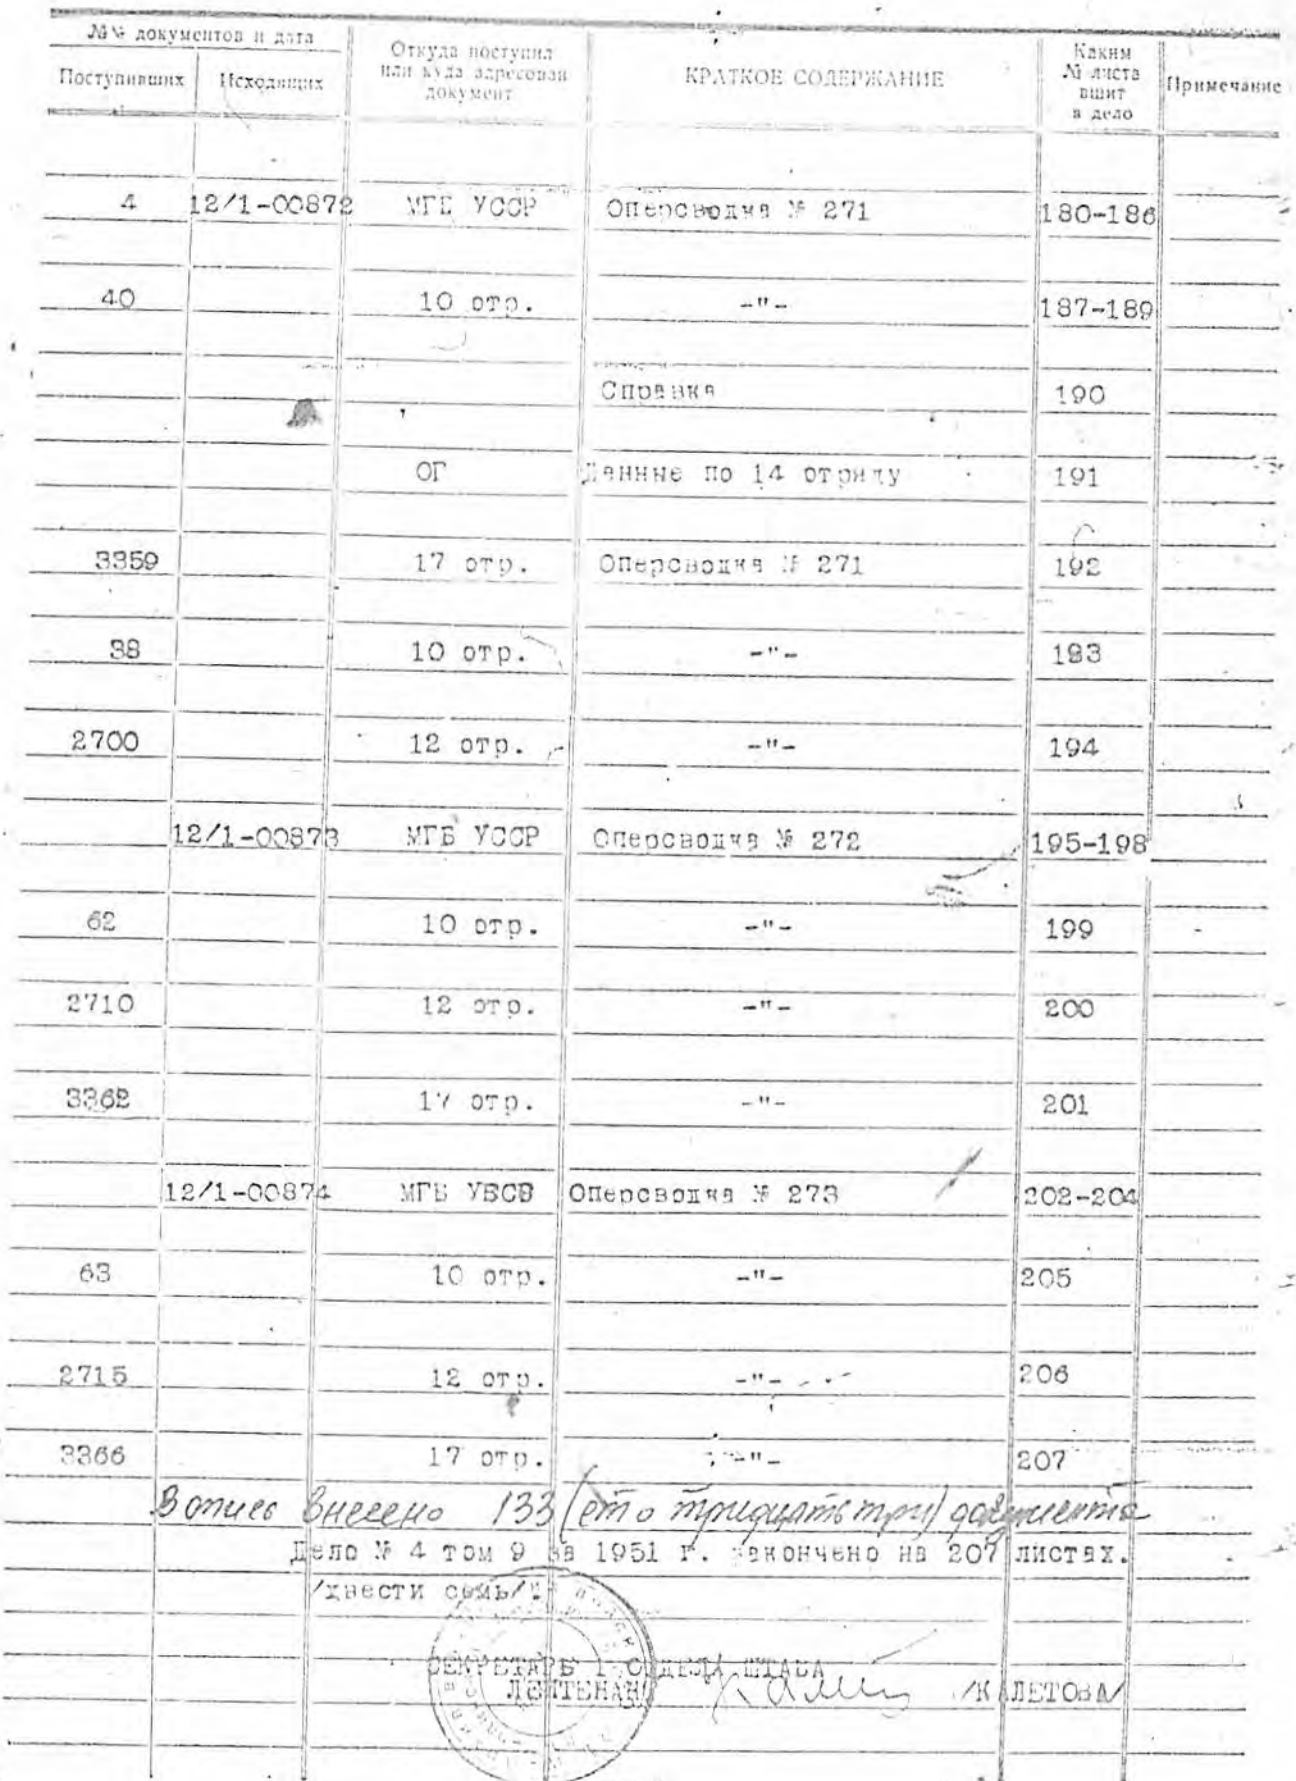 №№ документов и дата
Откуда поступил
или куда адресован
документ
КРАТКОЕ СОДЕРЖАНИЕ
Каким
№ листа
вшит
в дело
Примечание
Поступивших Исходящих
4 12/1-00872 МГБ УССР Оперсводка № 271 180-186
40 10 отр. -"- 187-189
Справка 190
ОГ Данные по 14 отряду 191
3359 17 отр. Оперсводка № 271 192
38 10 отр. -"- 193
2700 12 отр. -"- 194
12/1-00873 МГБ УССР Оперсводка № 272 195-198
62 10 отр. -"- 199
2710 12 отр. -"- 200
3362 17 отр. -"- 201
12/1-00874 МГБ УССР Оперсводка № 273 202-204
63 10 отр. -"- 205
2715 12 отр. -"- 206
3366 17 отр. -"- 207
В опись внесено 133 (сто тридцать три) документа
Дело № 4 том 9 за 1951 г. закончено на 207 листах.
/двести семь/
СЕКРЕТАРЬ 1 ОТДЕЛА ШТАБА
ЛЕЙТЕНАНТ /КАЛЕТОВА/